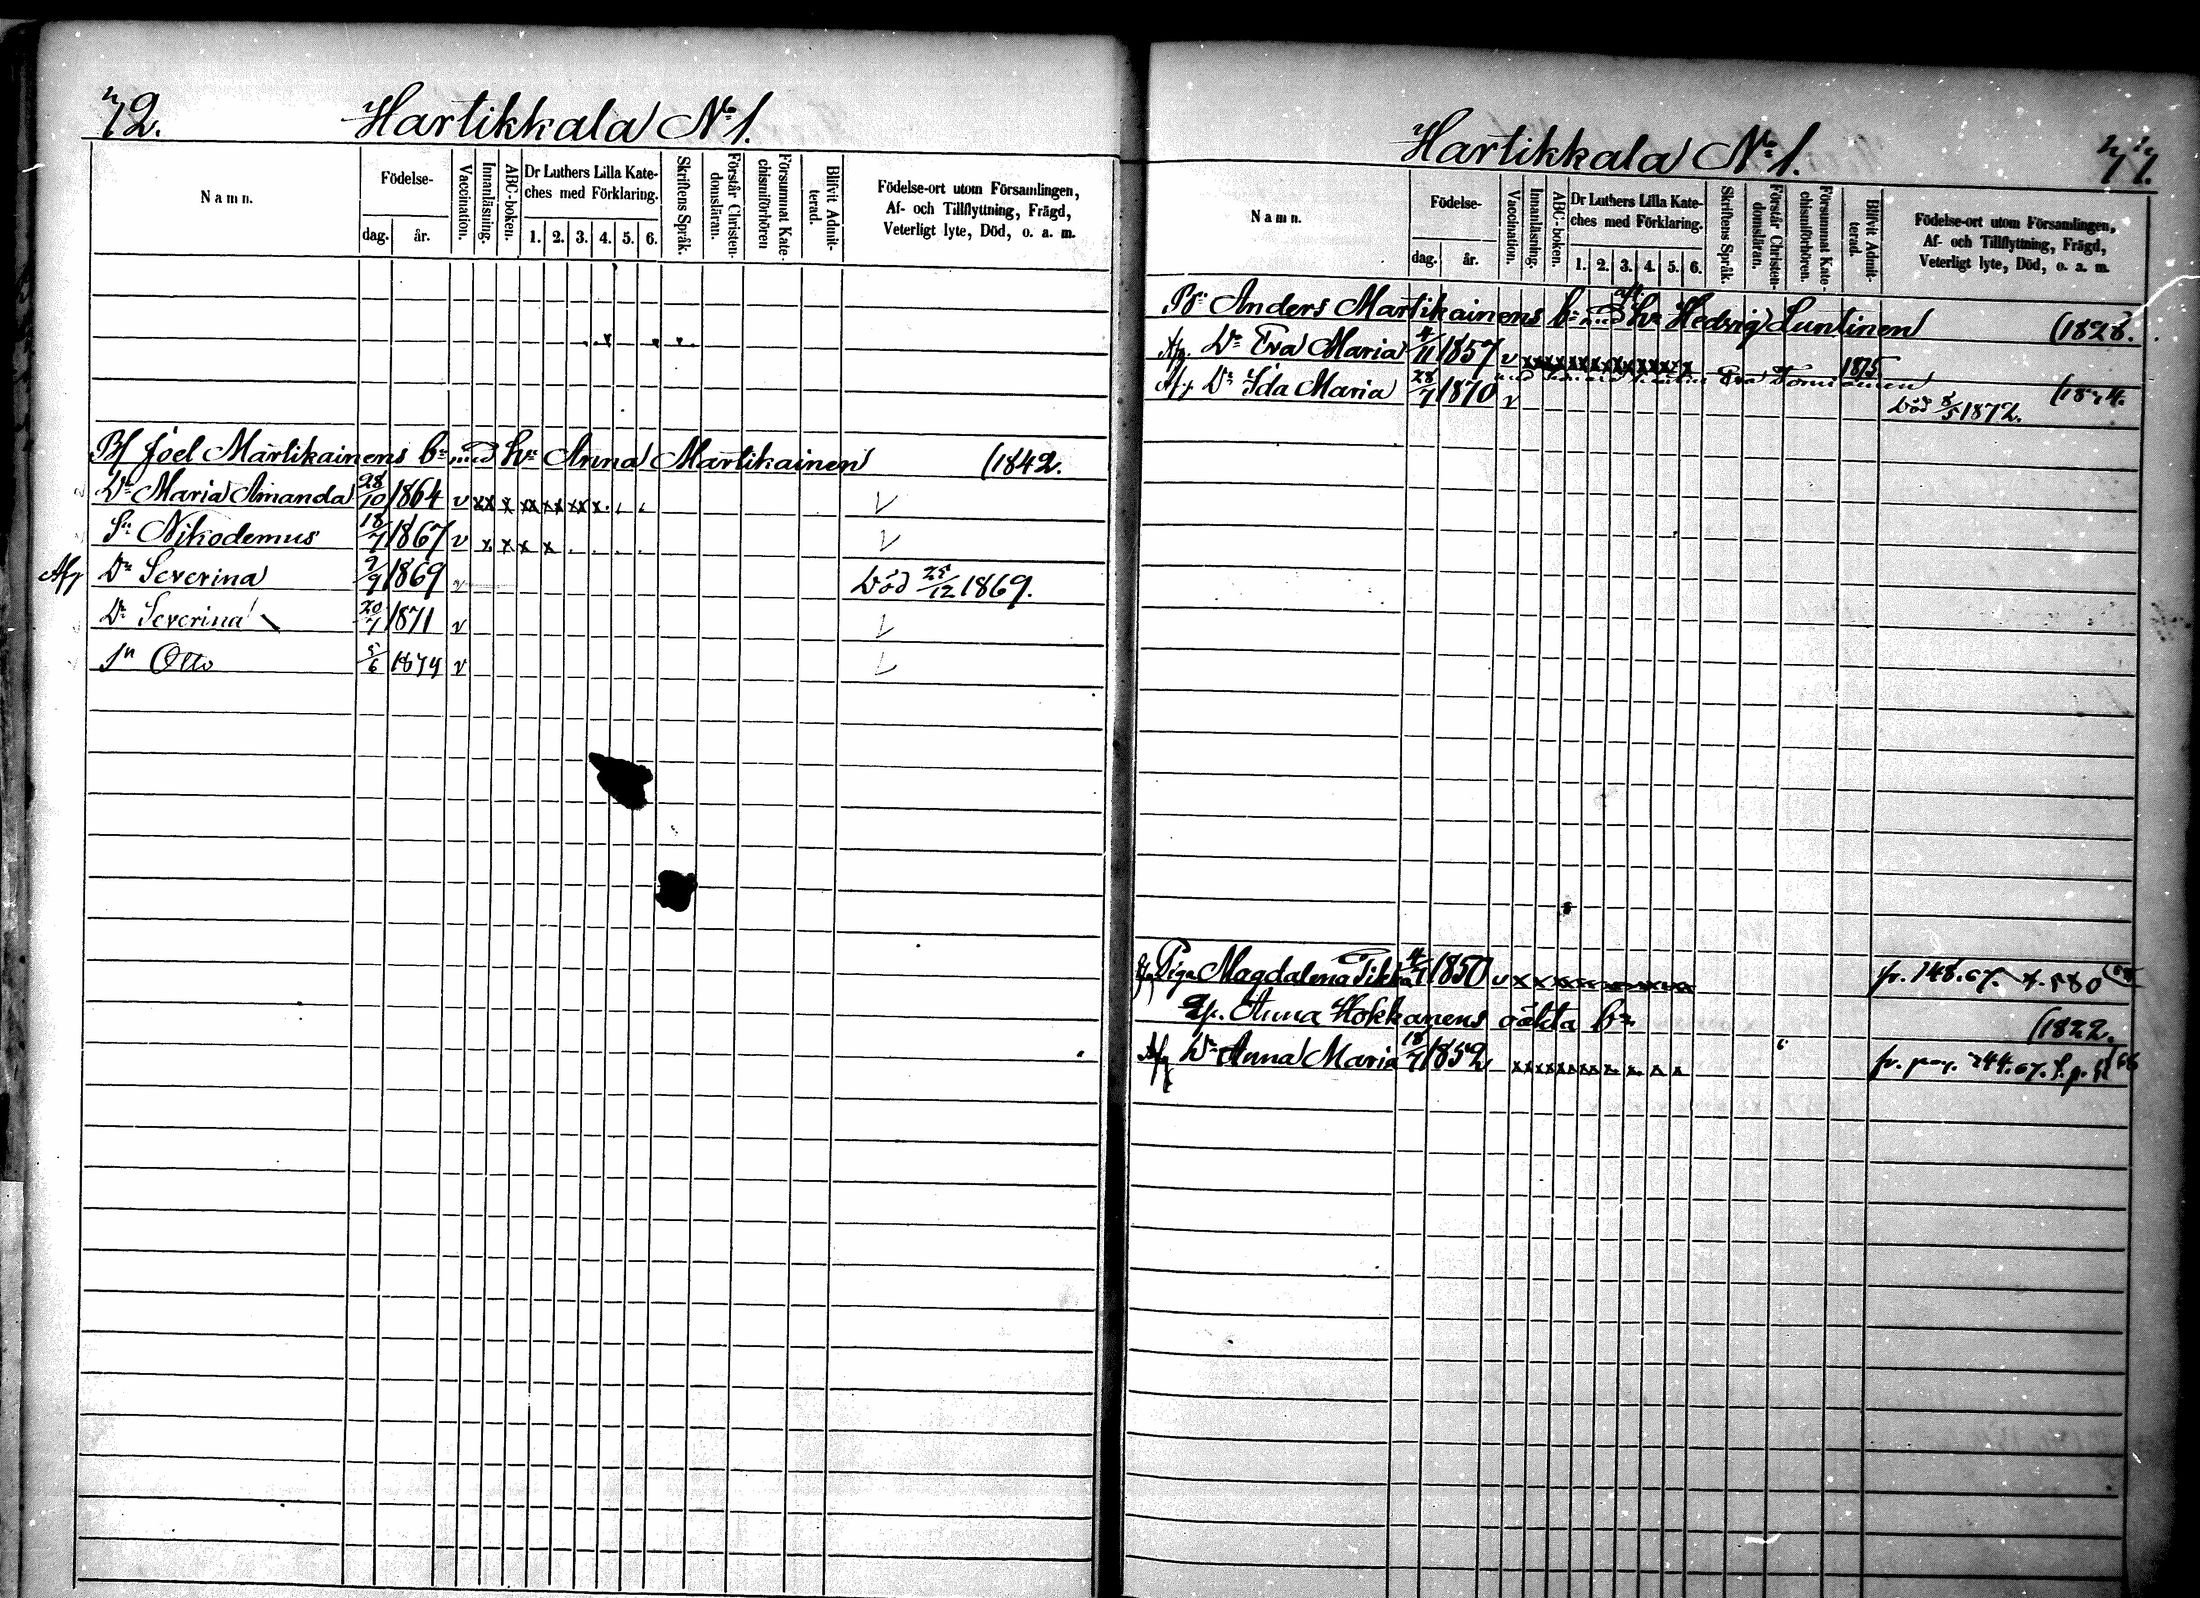 72. Hartikkala No 1.
Namn.
Födelse-
dag. år.
Vaccination.
Innanläsning.
ABC-boken.
Dr Luthers Lilla Kate-
ches med Förklaring.
1. 2. 3. 4. 5. 6.
Skriftens Språk.
Förstår Christen-
domsläran.
Försummat Kate-
chismiförhören
Blifvit Admit-
terad.
Födelse-ort utom Församlingen,
Af- och Tillflyttning, Frägd,
Veterligt lyte, Död, o. a. m.
Joel Martikainens bn med hu Anna Martikainen (1842.
Dr Maria Amanda 28/10 1864 v x x x x x x x x x . . . v
Sn Nikodemus 18/7 1867 v x x x x . . . . v
Afg Dr Severina 9/9 1869 v Död 25/12 1869.
Dr Severina 20/7 1871 v v
Sn Otto 5/6 1874 v v
Hartikkala No 1. 77.
Namn.
Födelse-
dag. år.
Vaccination.
Innanläsning.
ABC-boken.
Dr Luthers Lilla Kate-
ches med Förklaring.
1. 2. 3. 4. 5. 6.
Skriftens Språk.
Förstår Christen-
domsläran.
Försummat Kate-
chismiförhören.
Blifvit Admit-
terad.
Födelse-ort utom Församlingen,
Af- och Tillflyttning, Frägd,
Veterligt lyte, Död, o. a. m.
Anders Martikainens bn med hu Hedvig Luntinen (1828.
Afg. Dr Eva Maria 4/11 1857 v x x x x x x x x x x x 1875.
med Eva (1874.
Afg Dr Ida Maria 28/7 1870 v Död 8/5 1872.
Piga Magdalena Tikka 1850 v x x x x x x x x x fr. 148.67. 580
Anna Hokkanens oäkta bn (1822.
Afg Dr Anna Maria 18/7 1852 x x x x x x x x x x fr. pag. 244.67.